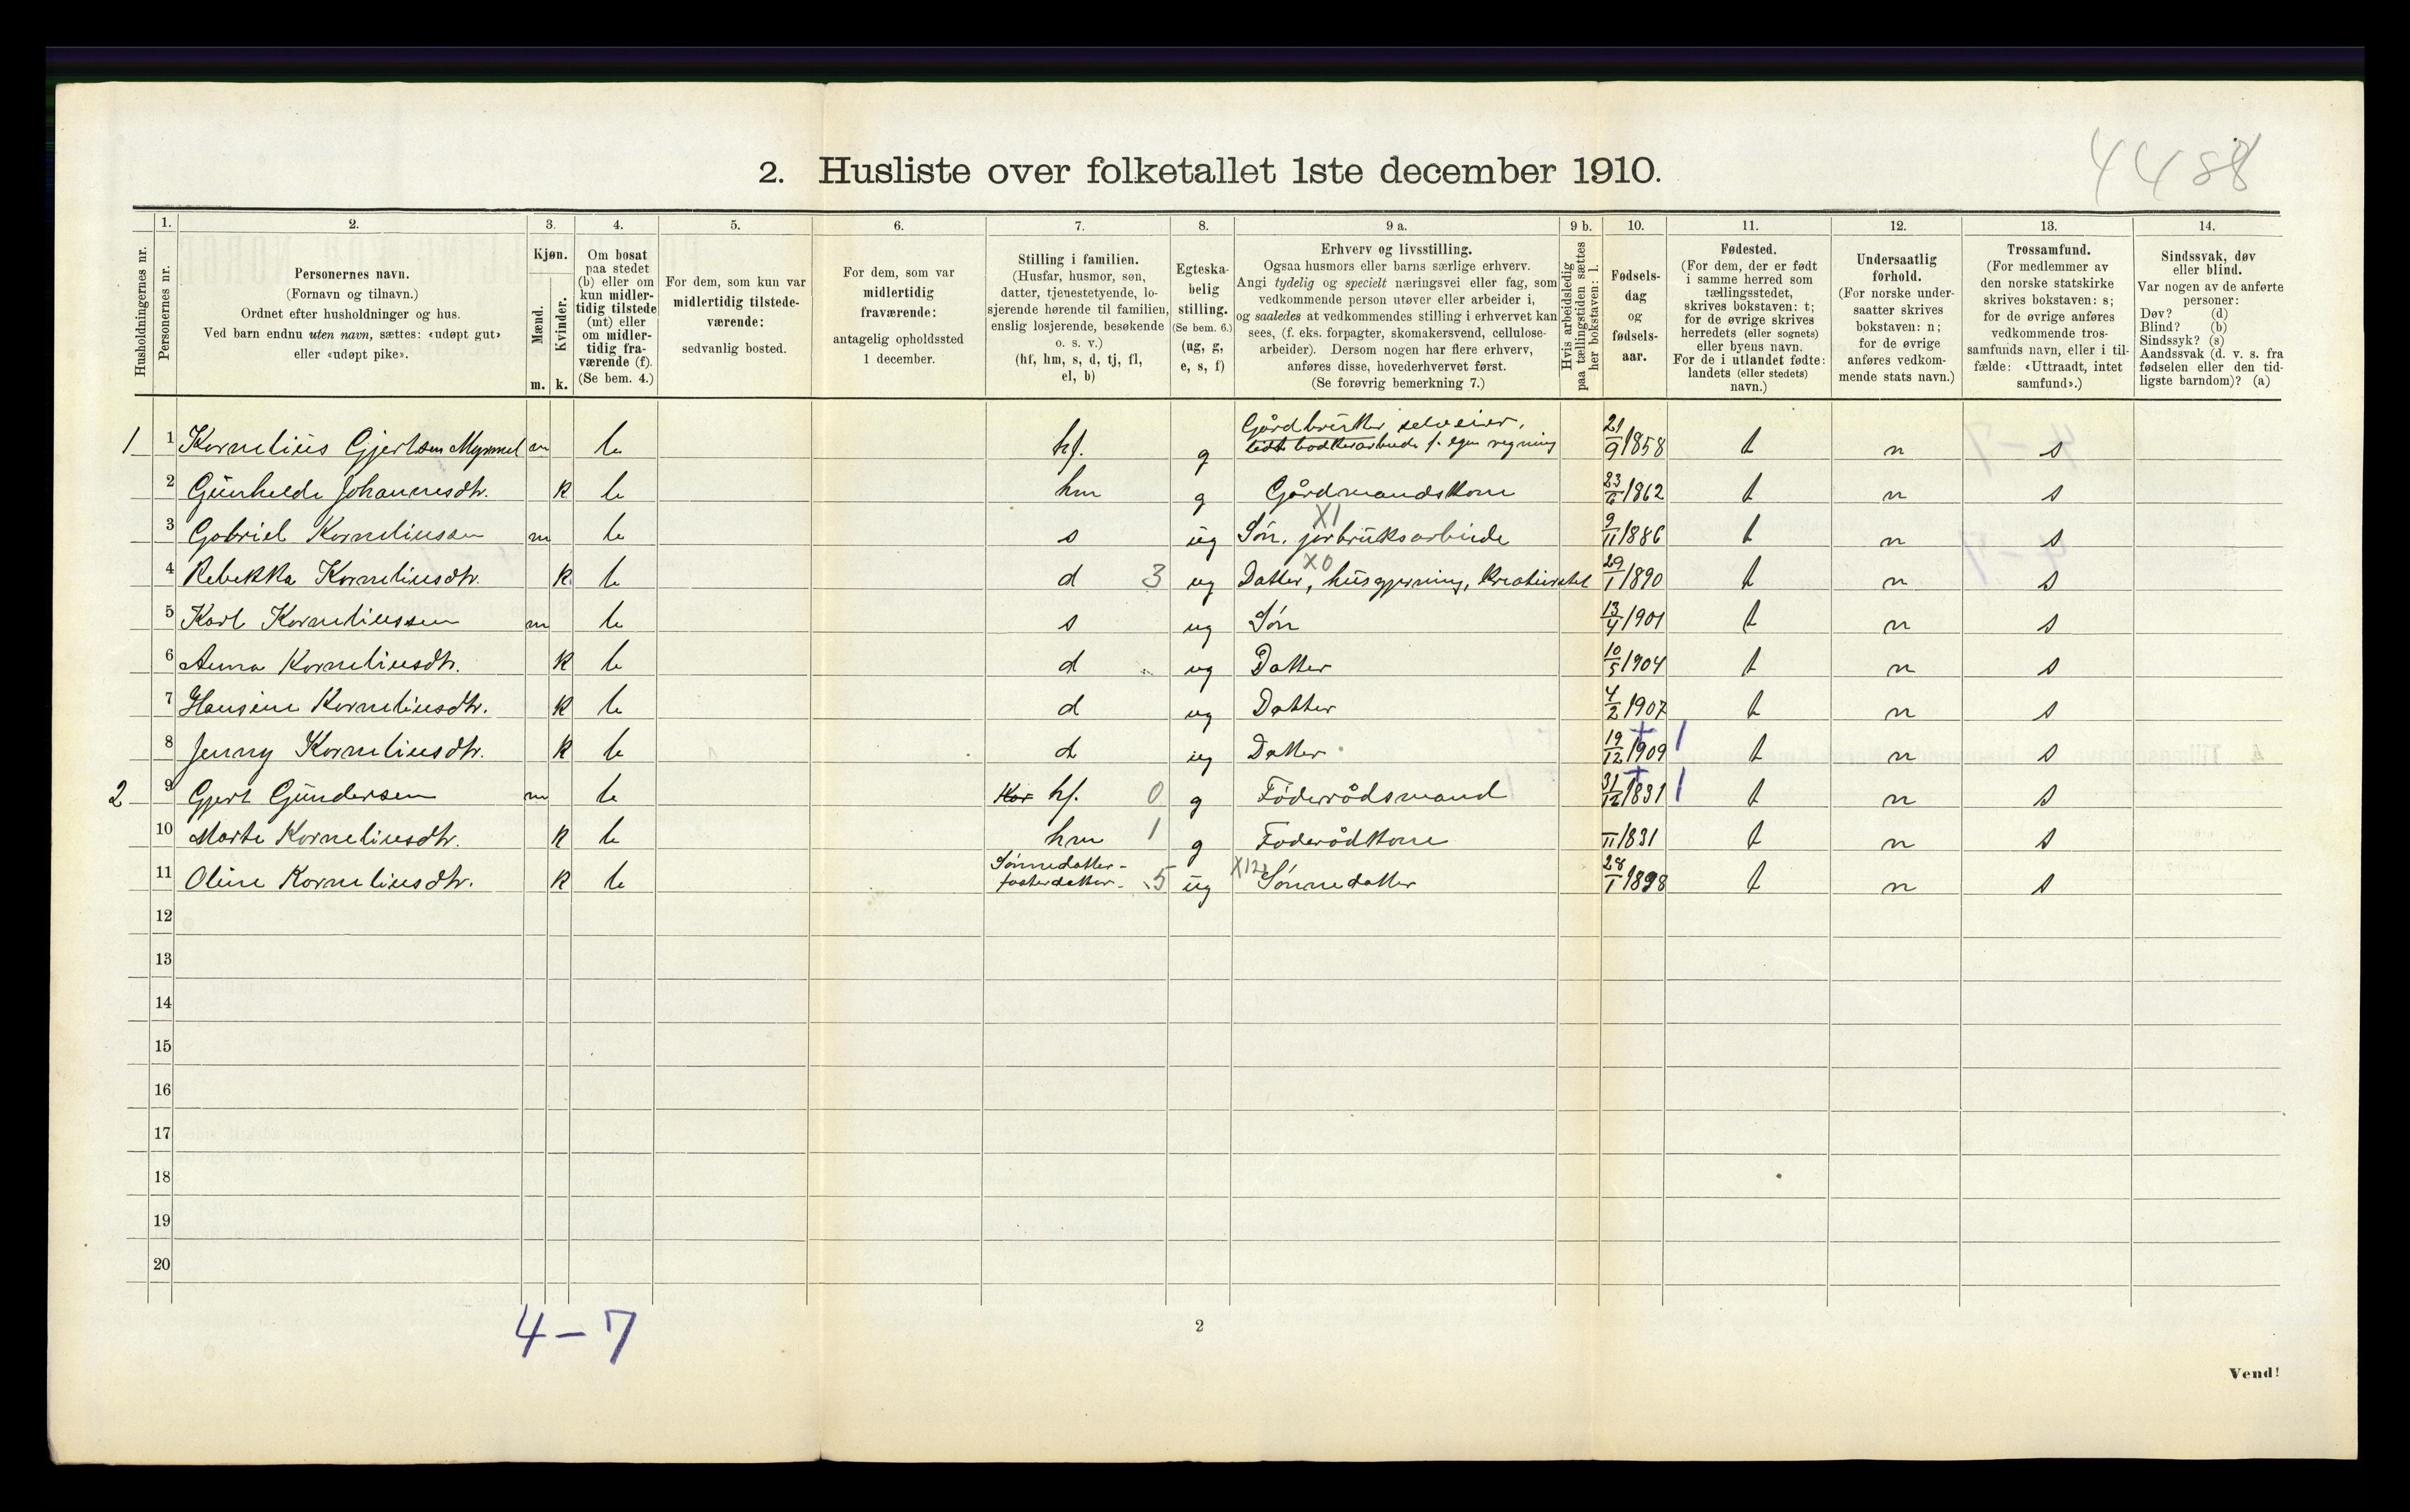 4488
2. Husliste over folketallet 1ste december 1910.
Husholdningernes nr.
1. Personernes nr.
2. Personernes navn. (Fornavn og tilnavn.) Ordnet efter husholdninger og hus. Ved barn endnu uten navn, sættes: «udøpt gut» eller «udøpt pike».
3. Kjøn. Mænd. m. Kvinder. k.
4. Om bosat paa stedet (b) eller om kun midlertidig tilstede (mt) eller om midlertidig fraværende (f). (Se bem. 4.)
5. For dem, som kun var midlertidig tilstedeværende: sedvanlig bosted.
6. For dem, som var midlertidig fraværende: antagelig opholdssted 1 december.
7. Stilling i familien. (Husfar, husmor, søn, datter, tjenestetyende, losjerende hørende til familien, enslig losjerende, besøkende o. s. v.) (hf, hm, s, d, tj, fl, el, b)
8. Egteskabelig stilling. (Se bem. 6.) (ug, g, e, s, f)
9 a. Erhverv og livsstilling. Ogsaa husmors eller barns særlige erhverv. Angi tydelig og specielt næringsvei eller fag, som vedkommende person utøver eller arbeider i, og saaledes at vedkommendes stilling i erhvervet kan sees, (f. eks. forpagter, skomakersvend, cellulosearbeider). Dersom nogen har flere erhverv, anføres disse, hovederhvervet først. (Se forøvrig bemerkning 7.)
9 b. Hvis arbeidsledig paa tællingstiden sættes her bokstaven: l.
10. Fødselsdag og fødselsaar.
11. Fødested. (For dem, der er født i samme herred som tællingsstedet, skrives bokstaven: t; for de øvrige skrives herredets (eller sognets) eller byens navn. For de i utlandet fødte: landets (eller stedets) navn.)
12. Undersaatlig forhold. (For norske undersaatter skrives bokstaven: n; for de øvrige anføres vedkommende stats navn.)
13. Trossamfund. (For medlemmer av den norske statskirke skrives bokstaven: s; for de øvrige anføres vedkommende trossamfunds navn, eller i tilfælde: «Uttraadt, intet samfund».)
14. Sindssvak, døv eller blind. Var nogen av de anførte personer: Døv? (d) Blind? (b) Sindssyk? (s) Aandssvak (d. v. s. fra fødselen eller den tidligste barndom)? (a)
1 1 Kornelius Gjertsen Myrmel m b hf. g Gårdbruker selveier, bødkerarbeide f. egen regning 21/9 1858 t n s
2 Gunhilde Johannesdtr. k b hm g Gårdmandskone 23/6 1862 t n s
3 Gabriel Korneliussen m b s ug Søn, jorbruksarbeide X1 9/11 1886 t n s
4 Rebekka Korneliusdtr. k b d 3 ug Datter, husgjerning, kreaturstel X0 29/1 1890 t n s
5 Karl Korneliussen m b s ug Søn 13/4 1901 t n s
6 Anna Korneliusdtr. k b d ug Datter 10/5 1904 t n s
7 Hansine Korneliusdtr. k b d ug Datter 4/2 1907 t n s
8 Jenny Korneliusdtr. k b d ug Datter 19/12 1909 + 1 t n s
2 9 Gjert Gundersen m b Kar hf. 0 g Föderådsmand 31/12 1831 + 1 t n s
10 Marte Korneliusdtr. k b hm 1 g Foderådkone /11 1831 t n s
11 Oline Korneliusdtr. k b Sønnedatter - fosterdatter. 5 ug X12 Sønnedatter 28/1 1898 t n s
12
13
14
15
16
17
18
19
20
4-7
2
Vend!